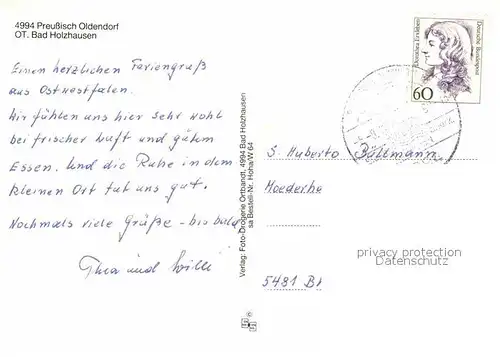 4994 Preußisch Oldendorf
OT. Bad Holzhausen
Einen herzlichen Feriengruß
aus Ostwestfalen.
Wir fühlen uns hier sehr wohl
bei frischer Luft und gutem
Essen. Und die Ruhe in dem
kleinen Ort tut uns gut.
Nochmals viele Grüße - bis bald
Thea und Willi
Verlag: Foto-Drogerie Ortbandt, 4994 Bad Holzhausen
sa Bestell-Nr. Holha/W 64
Dorothea Erxleben
Deutsche Bundespost
60
S. Huberto Büllmann
Moederhe
privacy protection
Datenschutz
5481 Br